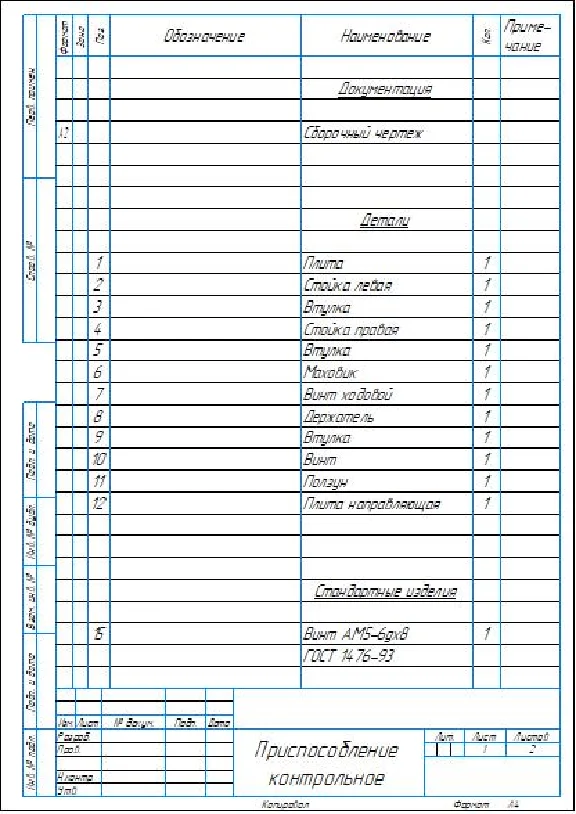 Перв. примен.
Справ. №
Подп. и дата
Инв. № дубл.
Взам. инв. №
Подп. и дата
Инв. № подл.
Формат Зона Поз. Обозначение Наименование Кол. Приме-
чание
Документация
Сборочный чертеж
Детали
1 Плита 1
2 Стойка левая 1
3 Втулка 1
4 Стойка правая 1
5 Втулка 1
6 Маховик 1
7 Винт ходовой 1
8 Держатель 1
9 Втулка 1
10 Винт 1
11 Ползун 1
12 Плита направляющая 1
Стандартные изделия
15 Винт А.М5-6gx8 1
ГОСТ 1476-93
Изм. Лист № докум. Подп. Дата
Разраб.
Пров.
Н.контр.
Утв.
Приспособление
контрольное
Лит. Лист Листов
1 2
Копировал Формат А4